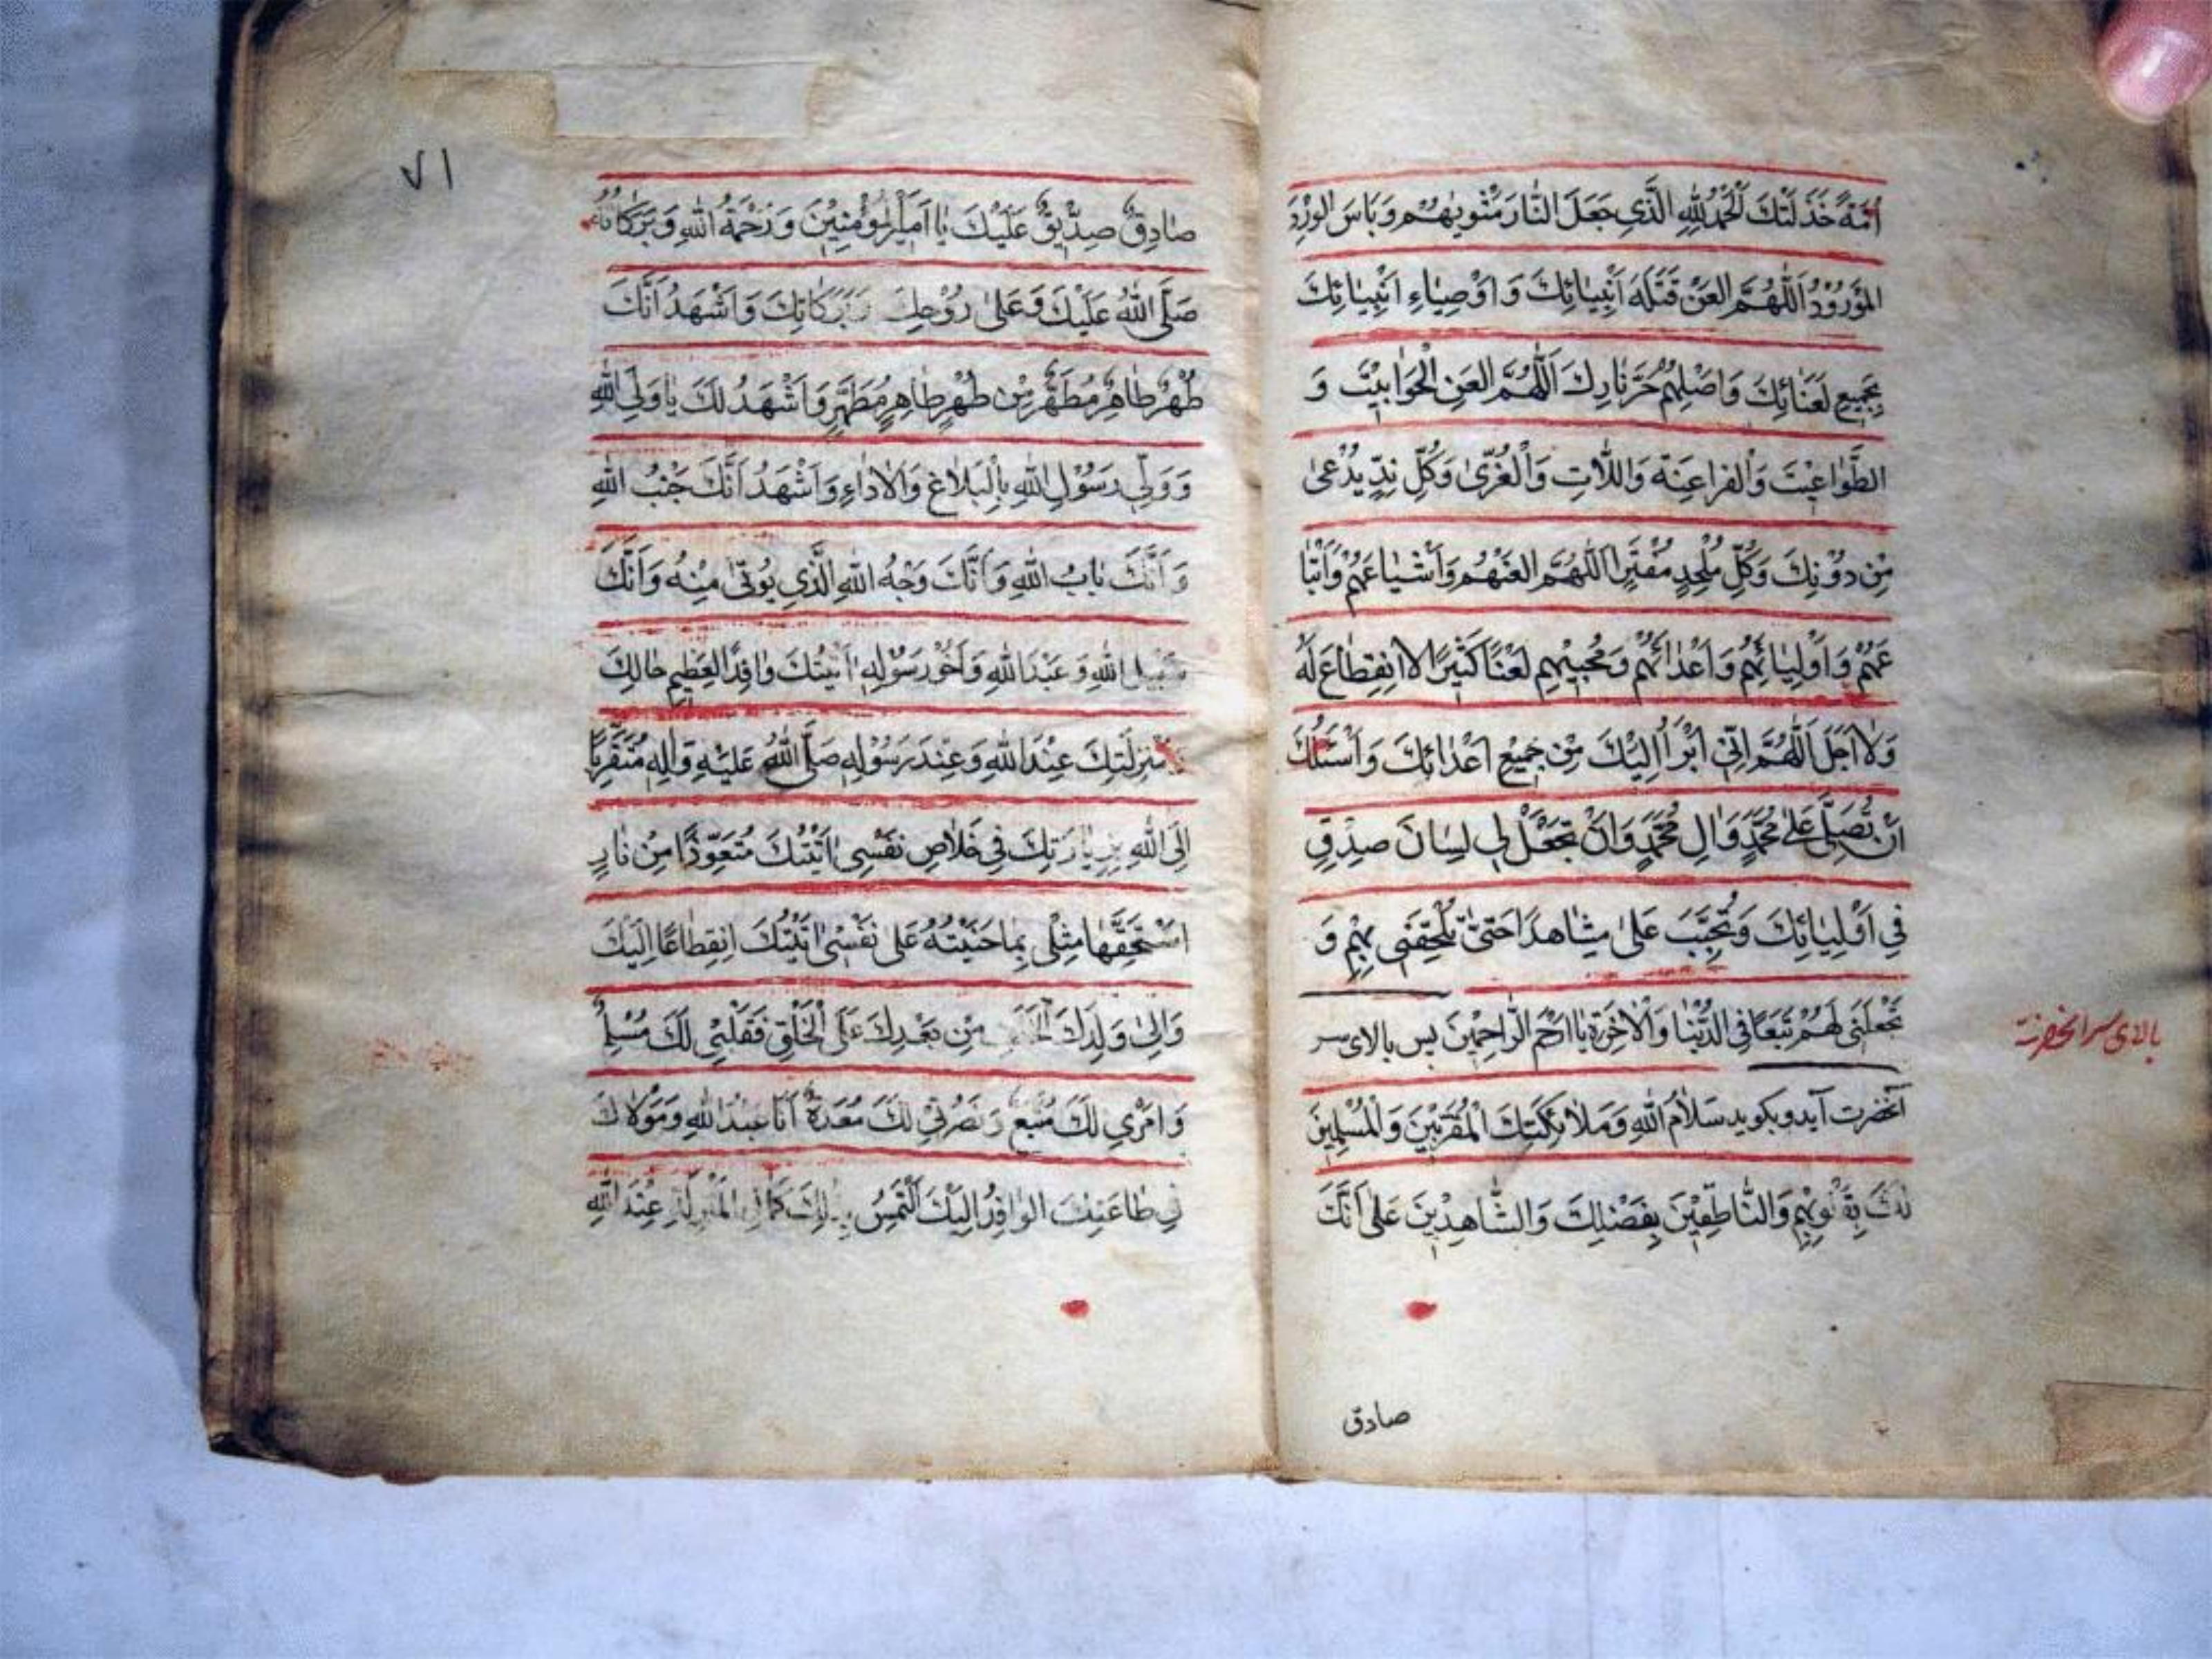 اُمَّةً خَذَلَتْكَ اَلْحَمْدُ لِلّٰهِ الَّذِي جَعَلَ النَّارَ مَثْوٰيهُمْ وَبِاسَ الوِرْدُ
المَوْرُوْدُ اَللّٰهُمَّ العَنْ قَتَلَهَ اَنْبِيٰائِكَ وَ اَوْصِيٰاءِ اَنْبِيٰائِكَ
بِجَمِيعِ لَعَنٰائِكَ وَاصْلِهِمْ حَرَّ نٰارِكَ اَللّٰهُمَّ العَنِ الْجَوٰابيْتَ وَ
الطَّوٰاغيْتَ وَالْفراعِنَة وَاللّٰاتِ وَالْعُزّىٰ وَكُلِّ نِدٍّ يُدْعىٰ
مِنْ دوُنِكَ وَكُلِّ مُلْحِدٍ مُفْتَرٍ اَللّٰهُمَّ العَنْهُمْ وَاَشْيٰاعَهُمْ وَاَتْبٰا
عَهُمْ وَاَوْلِيٰائَهُمْ وَاَعْذٰائَهُمْ وَمُحِبيّهِمْ لَعْنًا كَثيْرًا لا انقِطٰاعَ لَهُ
وَلٰا اَجَلَ اَللّٰهُمَّ اِنّي اَبْرَأُ اِلَيْكَ مِنْ جَميْعِ اَعْدٰائِكَ وَاَسْئَلُكَ
اَنْ تُصَلِّىَ عَلىٰ مُحَمَّدٍ وَاٰلِ مُحَمَّدٍ وَاَنْ تَجْعَلْ لي لِسٰانَ صِدْقٍ
فِي اَوْلِيٰائِكَ وَتُحَبِّبَ عَلىٰ مشٰاهدَ احَتىّٰ تُلْحِقَنى بِهِمْ وَ
تَجْعَلَنى لَهُمْ تَبَعًا فِى الدُّنْيٰا وَالْاٰخِرَةِ يٰا اَرْحَمَ الرّٰاحِميْنَ پس بالاى سر
آنحضرت آيد وبكويد سَلاٰمُ اللّٰهِ وَمَلاٰئِكَتِكَ الْمُقَرَّبيْنَ وَالْمُسْلِميْنَ
لَكَ بِقُلُوبِهِمْ وَالنّٰاطِقيْنَ بِفَضْلِكَ وَالشّٰاهِديْنَ عَلىٰ اَنَّكَ
بالاى سر انحضرت
صادق
٧١
صٰادِقٌ صِدّيْقٌ عَلَيْكَ يٰا اَميْرَ المُؤْمِنيْنَ وَرَحْمَةُ اللّٰهِ وَبَرَكٰاتُهُ
صَلَّى اللّٰهُ عَلَيْكَ وَعَلىٰ رُوْحِكَ وَبَرَكٰاتِكَ وَاَشْهَدُ اَنَّكَ
طُهْرٌ طٰاهِرٌ مُطَهَّرٌ مِنْ طُهْرٍ طٰاهِرٍ مُطَهَّرٍ وَاَشْهَدُ لَكَ يٰا وَلِيَّ اللّٰهِ
وَ وَلِيَّ رَسُوْلِ اللّٰهِ بِالْبَلاٰغِ وَالْاَدٰاءِ وَاَشْهَدُ اَنَّكَ جَنْبُ اللّٰهِ
وَ اَنَّكَ بٰابُ اللّٰهِ وَ اَنَّكَ وَجْهُ اللّٰهِ الَّذِي يُؤتىٰ مِنْهُ وَاَنَّكَ
سَبيلُ اللّٰهِ وَ عَبْدَ اللّٰهِ وَاَخُوْ رَسُوْلِهِ اَتَيْتُكَ وٰافِدًا لعَظيمِ حٰالِكَ
وَمَنْزِلَتِكَ عِنْدَ اللّٰهِ وَعِنْدَ رَسُوْلِهِ صَلَّى اللّٰهُ عَلَيْهِ وَاٰلِهِ مُتَقَرِّبًا
اِلَى اللّٰهِ بِزِيٰارَتِكَ فِي خَلاٰصِ نَفْسِى اَتَيْتُكَ مُتَعَوِّذًا مِنْ نٰارٍ
اسْتَحَقَّهٰا مِثْلِى بِمٰا جَنَيْتُهُ عَلىٰ نَفْسْى اَتَيْتُكَ انِقِطٰاعًا اِلَيْكَ
وَاِلىٰ وَلَدِكَ الْخَلَفِ مِنْ بَعْدِكَ عَلَى الْخَلْقِ فَقَلْبِي لَكَ مُسَلِّمٌ
وَ اَمْرْي لَكَ مُتَّبِعٌ وَ نَصْرُتي لَكَ مُعَدَةٌ اَنَا عبْدُ اللّٰهِ وَمَوْلاٰكَ
في طٰاعَتِكَ الوٰافِدُ اِلَيْكَ اَلْتَمِسُ بِذٰلِكَ كَمٰالَ المَنْزِلَةِ عِنْدَ اللّٰهِ